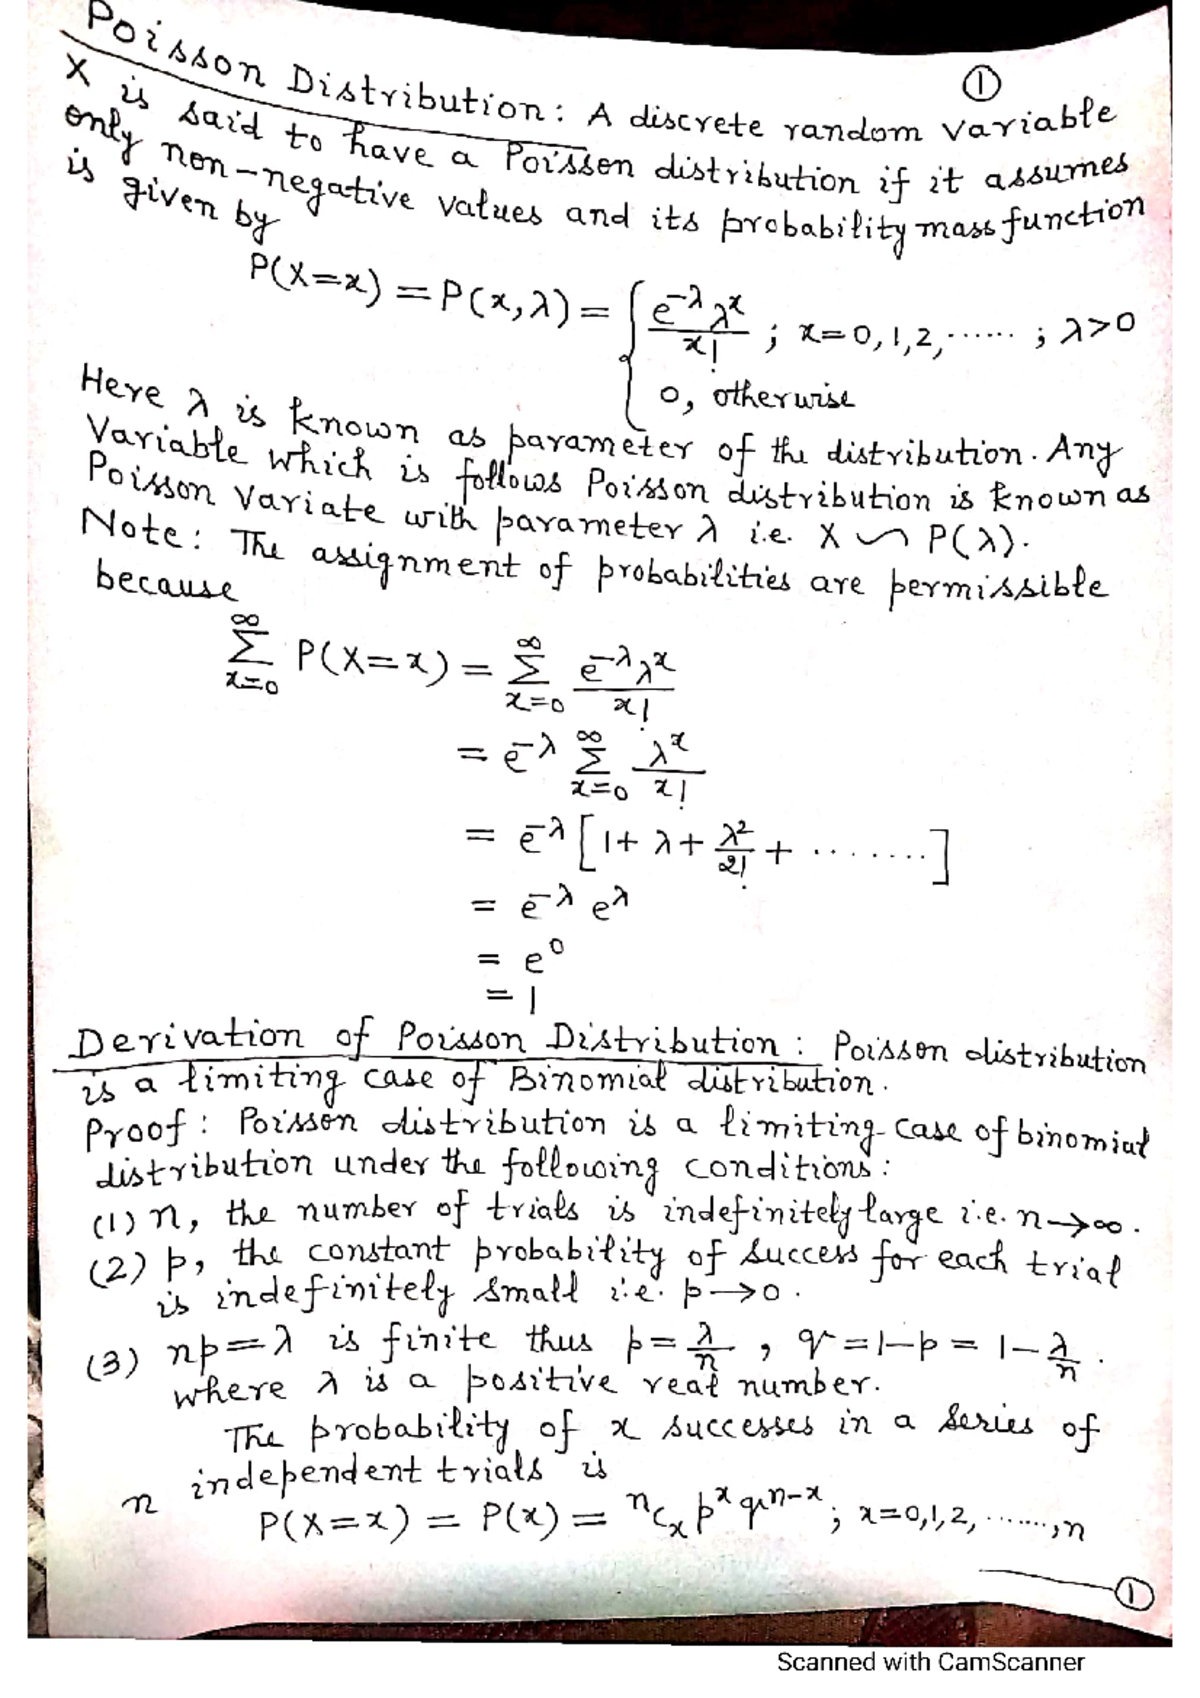 ①
Poisson Distribution: A discrete random variable
X is said to have a Poisson distribution if it assumes
only non-negative values and its probability mass function
is given by
P(X=x) = P(x,λ) = { e^-λ λ^x / x! ; x=0,1,2,...... ; λ>0
0, otherwise
Here λ is known as parameter of the distribution. Any
Variable which is follows Poisson distribution is known as
Poisson Variate with parameter λ i.e. X ∽ P(λ).
Note: The assignment of probabilities are permissible
because
∞Σx=0 P(X=x) = ∞Σx=0 e^-λ λ^x / x!
= e^-λ ∞Σx=0 λ^x / x!
= e^-λ [1+ λ+ λ²/2! + ........]
= e^-λ e^λ
= e^0
= 1
Derivation of Poisson Distribution: Poisson distribution
is a limiting case of Binomial distribution.
Proof: Poisson distribution is a limiting case of binomial
distribution under the following conditions:
(1) n, the number of trials is indefinitely large i.e. n→∞.
(2) p, the constant probability of success for each trial
is indefinitely small i.e. p→0.
(3) np=λ is finite thus p= λ/n , q=1-p = 1-λ/n .
where λ is a positive real number.
The probability of x successes in a series of
n independent trials is
P(X=x) = P(x) = nCx p^x q^n-x ; x=0,1,2, ......,n
①
Scanned with CamScanner